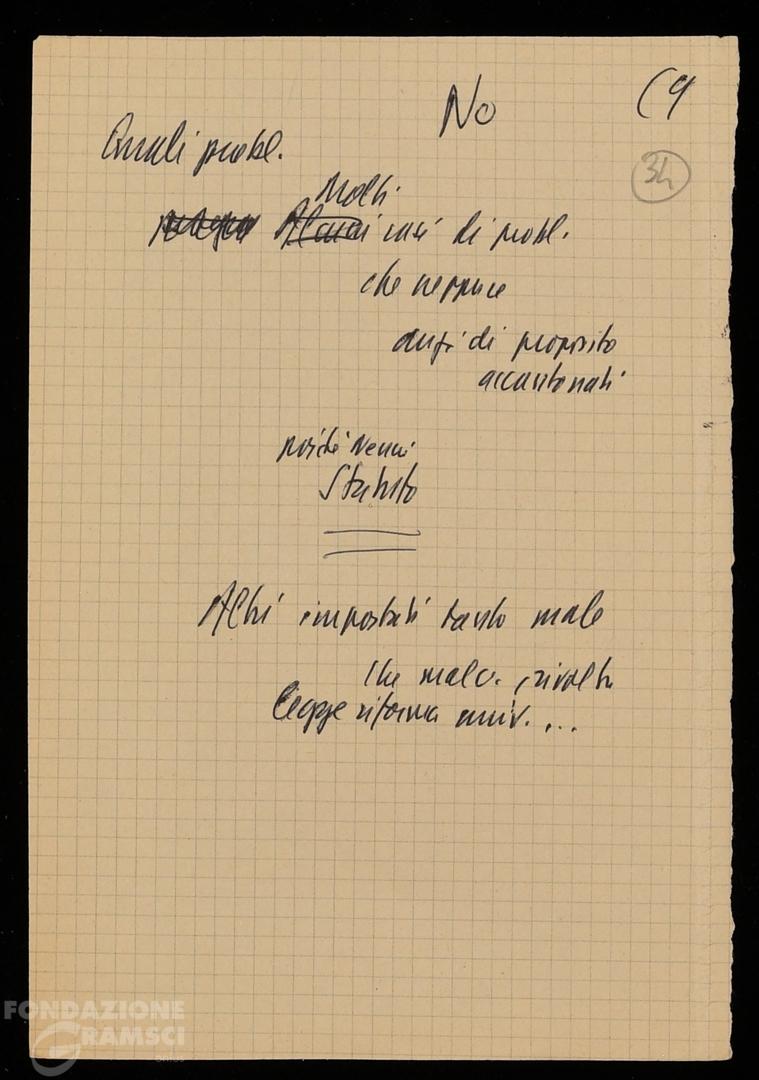 No
(9
34
Quali probl.
Molti
Alcuni casi di probl.
che neppure
anzi di proposito
accantonati
poiché Nenni
Statuto
Altri impostati tanto male
che malc. rivolta
Legge riforma univ. ...
FONDAZIONE
GRAMSCI
onlus